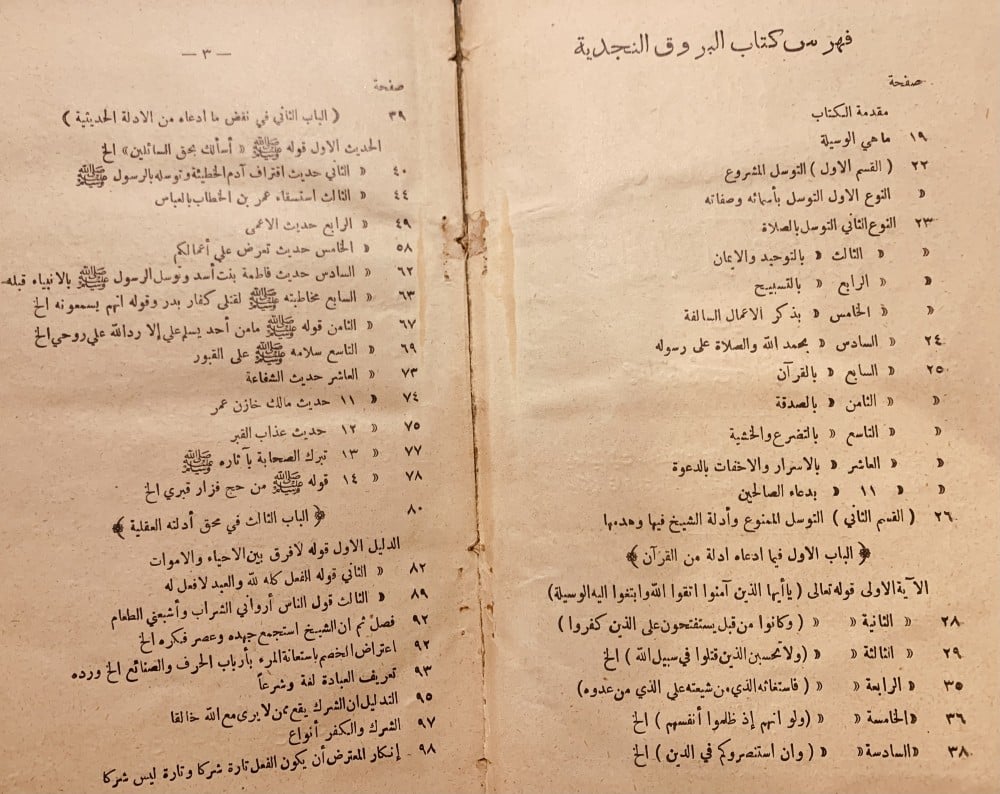 فهرس كتاب البروق النجدية
صفحة
مقدمة الكتاب
١٩ ماهي الوسيلة
٢٢ ( القسم الاول ) التوسل المشروع
« النوع الاول التوسل بأسمائه وصفاته
٢٣ النوع الثاني التوسل بالصلاة
« « الثالث « بالتوحيد والايمان
« « الرابع « بالتسبيح
« « الخامس « بذكر الاعمال السالفة
٢٤ « السادس « بحمد الله والصلاة على رسوله
٢٥ « السابع « بالقرآن
« « الثامن « بالصدقة
« « التاسع « بالتضرع والخشية
« « العاشر « بالاسرار والاخفات بالدعوة
« « ١١ « بدعاء الصالحين
٢٦ ( القسم الثاني ) التوسل الممنوع وأدلة الشيخ فيها وهدمها
﴿ الباب الاول فيما ادعاه ادلة من القرآن ﴾
الآية الاولى قوله تعالى ( ياأيها الذين آمنوا اتقوا الله وابتغوا اليه الوسيلة )
٢٨ « الثانية « « ( وكانوا من قبل يستفتحون على الذين كفروا )
٢٩ « الثالثة « « ( ولا تحسبن الذين قتلوا في سبيل الله ) الخ
٣٥ « الرابعة « « ( فاستغاثه الذي من شيعته على الذي من عدوه )
٣٦ « الخامسة « « ( ولو انهم إذ ظلموا أنفسهم ) الخ
٣٨ « السادسة « « ( وان استنصروكم في الدين ) الخ
— ٣ —
صفحة
٣٩ ( الباب الثاني في نقض ما ادعاه من الادلة الحديثية )
الحديث الاول قوله ﷺ « أسألك بحق السائلين » الخ
٤٠ « الثاني حديث اقتراف آدم الخطيئة وتوسله بالرسول ﷺ
٤٤ « الثالث استسقاء عمر بن الخطاب بالعباس
٤٩ « الرابع حديث الاعمى
٥٨ « الخامس حديث تعرض علي أعمالكم
٦٢ « السادس حديث فاطمة بنت أسد وتوسل الرسول ﷺ بالانبياء قبله
٦٣ « السابع مخاطبته ﷺ لقتلى كفار بدر وقوله انهم يسمعونه الخ
٦٧ « الثامن قوله ﷺ مامن أحد يسلم علي إلا رد الله علي روحي الخ
٦٩ « التاسع سلامه ﷺ على القبور
٧٣ « العاشر حديث الشفاعة
٧٤ « ١١ حديث مالك خازن عمر
٧٥ « ١٢ حديث عذاب القبر
٧٧ « ١٣ تبرك الصحابة بآثاره ﷺ
٧٨ « ١٤ قوله ﷺ من حج فزار قبري الخ
٨٠ ﴿ الباب الثالث في محق أدلته العقلية ﴾
الدليل الاول قوله لافرق بين الاحياء والاموات
٨٢ « الثاني قوله الفعل كله لله والعبد لافعل له
٨٩ « الثالث قول الناس أرواني الشراب وأشبعني الطعام
٩٢ فصل ثم ان الشيخ استجمع جهده وعصر فكره الخ
٩٢ اعتراض الخصم باستعانة المرء بأرباب الحرف والصنائع الخ ورده
٩٣ تعريف العبادة لغة وشرعاً
٩٥ التدليل ان الشرك يقع ممن لا يرى مع الله خالقا
٩٧ الشرك والكفر أنواع
٩٨ إنكار المعترض أن يكون الفعل تارة شركا وتارة ليس شركا